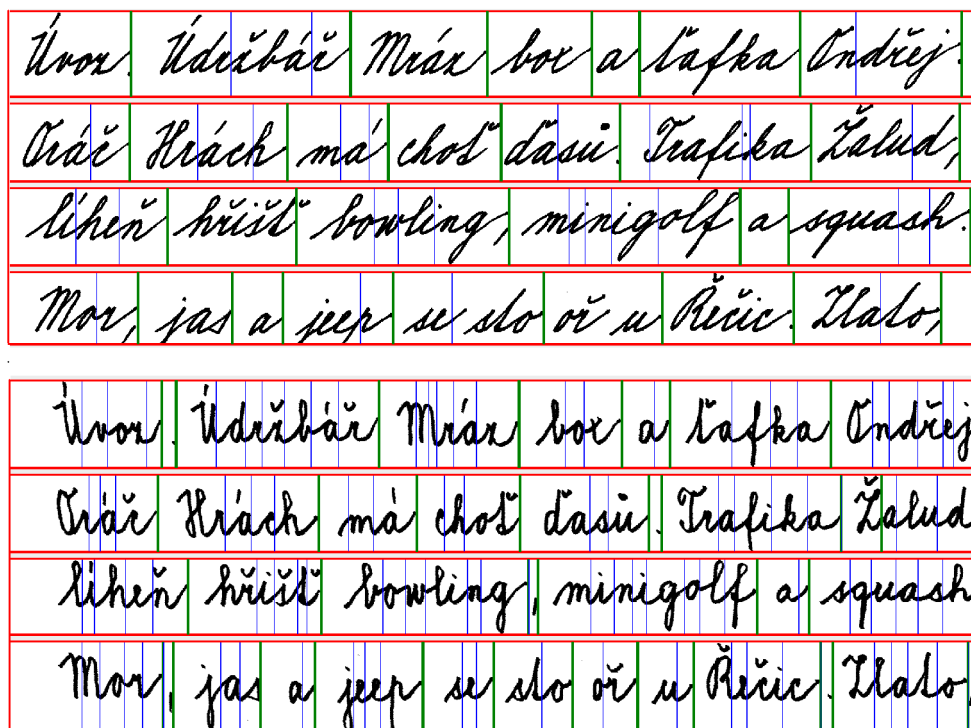 Úvoz. Údržbář Mráz box a ťafka Ondřej.
Oráč Hrách má choť ďasů. Trafika Žalud,
líheň hřišť bowling, minigolf a squash.
Mor, jas a jeep se sto oř u Řečic. Zlato,
Úvoz. Údržbář Mráz box a ťafka Ondřej
Oráč Hrách má choť ďasů. Trafika Žalud
líheň hřišť bowling, minigolf a squash
Mor, jas a jeep se sto oř u Řečic. Zlato,